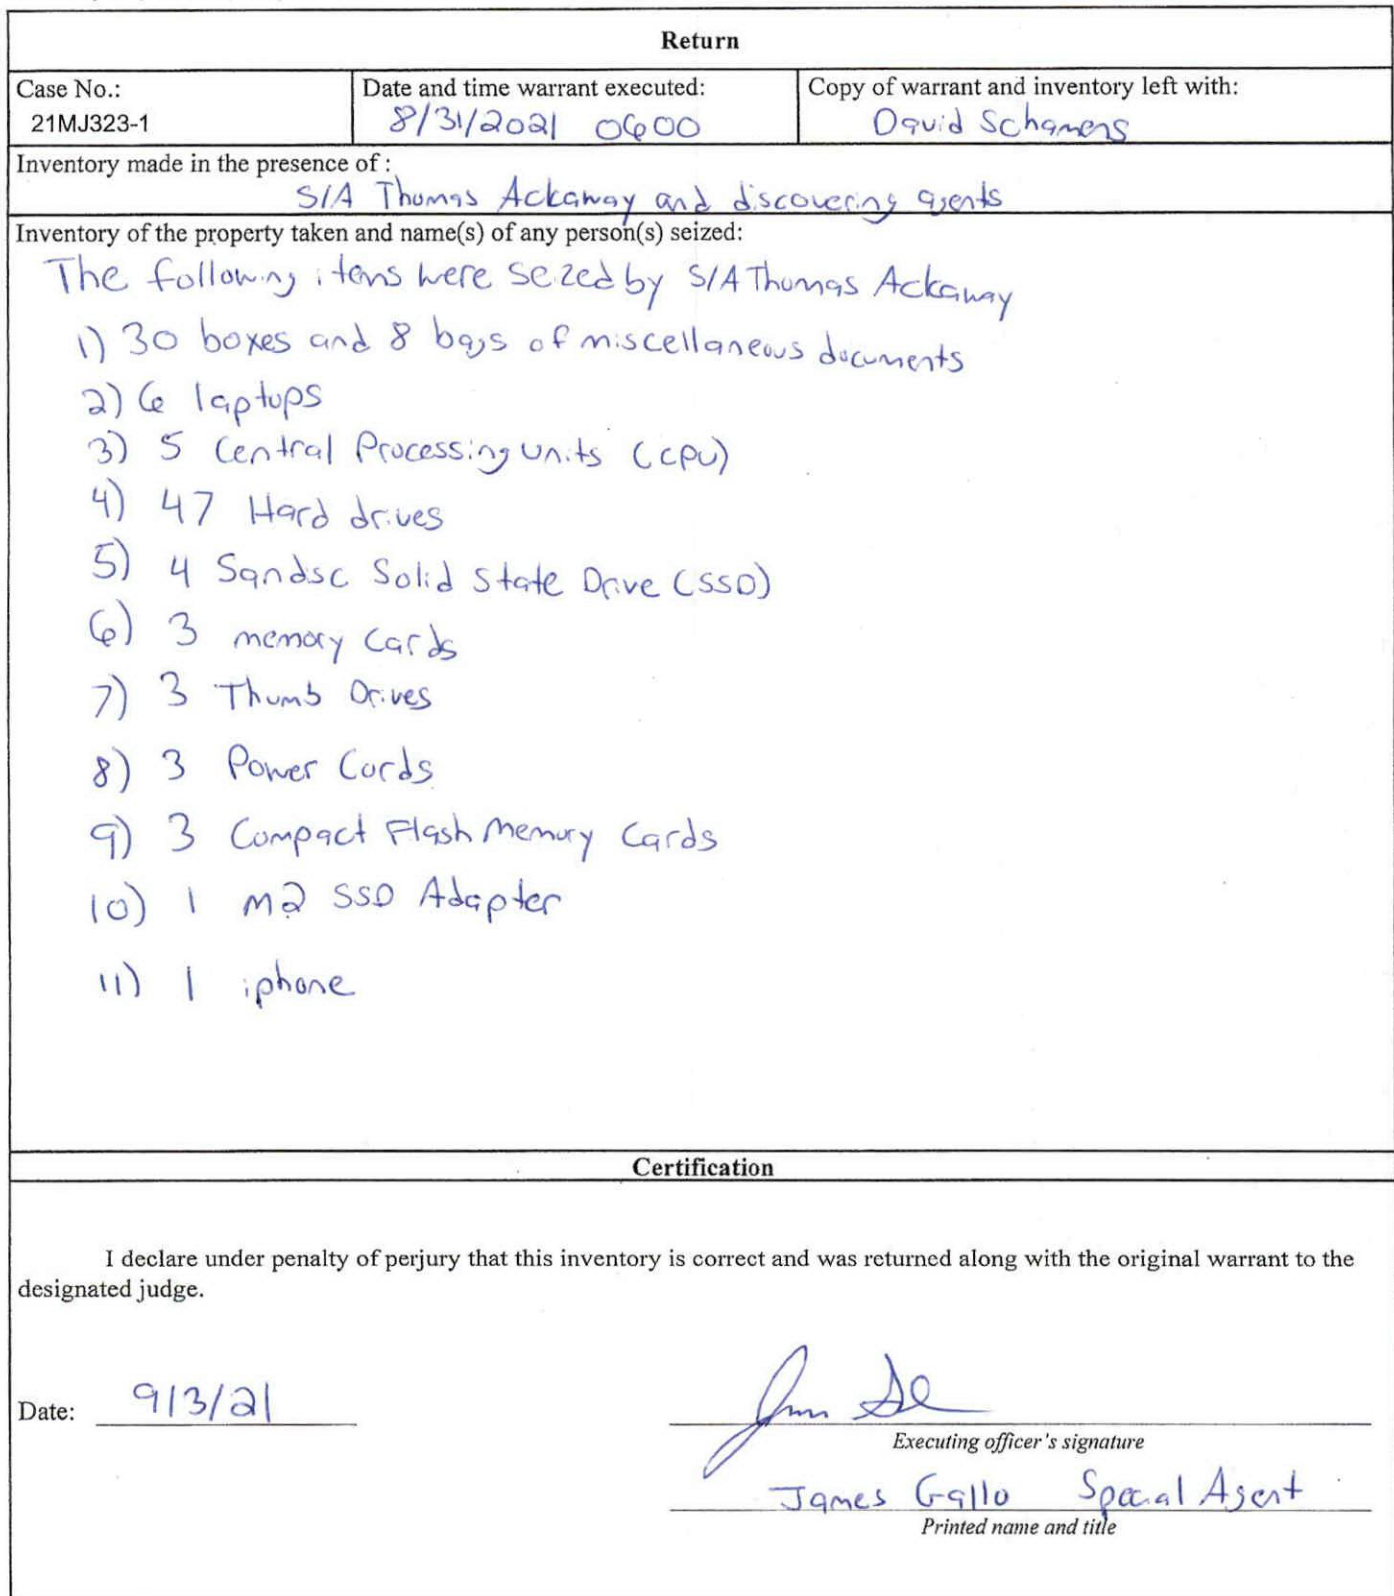 Return
Case No.:
21MJ323-1
Date and time warrant executed:
8/31/2021 0600
Copy of warrant and inventory left with:
David Schamens
Inventory made in the presence of :
S/A Thomas Ackaway and discovering agents
Inventory of the property taken and name(s) of any person(s) seized:
The following items were seized by S/A Thomas Ackaway
1) 30 boxes and 8 bags of miscellaneous documents
2) 6 laptops
3) 5 Central Processing units (cpu)
4) 47 Hard drives
5) 4 Sandsc Solid State Drive (SSD)
6) 3 memory cards
7) 3 Thumb Drives
8) 3 Power Cords
9) 3 Compact Flash Memory Cards
10) 1 M2 SSD Adapter
11) 1 iphone
Certification
I declare under penalty of perjury that this inventory is correct and was returned along with the original warrant to the
designated judge.
Date: 9/3/21
Executing officer's signature
James Gallo Special Agent
Printed name and title